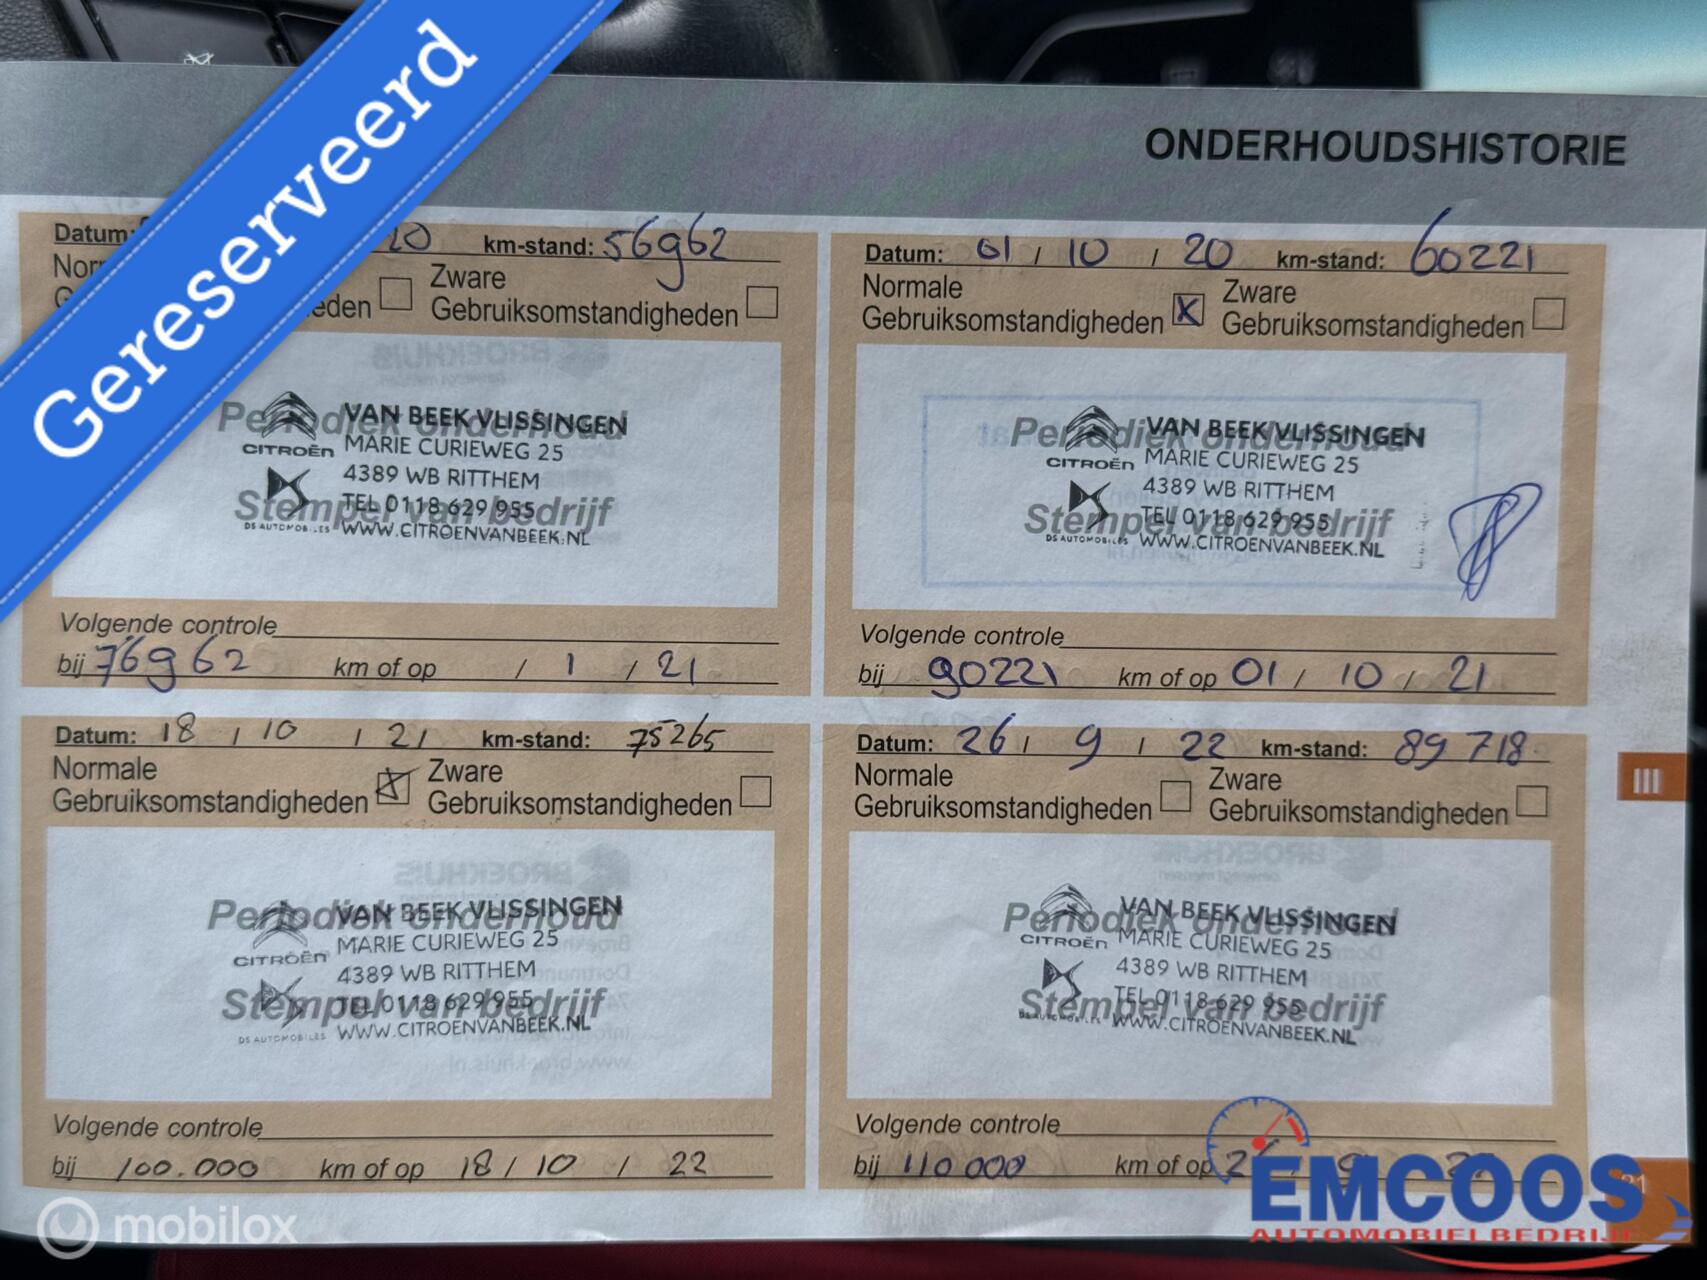 Gereserveerd
ONDERHOUDSHISTORIE
Datum: 20 km-stand: 56962
Zware
eden Gebruiksomstandigheden
Periodiek onderhoud
Stempel van bedrijf
CITROËN
DS AUTOMOBILES
VAN BEEK VLISSINGEN
MARIE CURIEWEG 25
4389 WB RITTHEM
TEL 0118 629 955
WWW.CITROENVANBEEK.NL
Volgende controle
bij 76962 km of op / 1 / 21
Datum: 01 / 10 / 20 km-stand: 60221
Normale Zware
Gebruiksomstandigheden X Gebruiksomstandigheden
Periodiek onderhoud
Stempel van bedrijf
CITROËN
DS AUTOMOBILES
VAN BEEK VLISSINGEN
MARIE CURIEWEG 25
4389 WB RITTHEM
TEL 0118 629 955
WWW.CITROENVANBEEK.NL
Volgende controle
bij 90221 km of op 01 / 10 / 21
Datum: 18 / 10 / 21 km-stand: 75265
Normale Zware
Gebruiksomstandigheden X Gebruiksomstandigheden
Periodiek onderhoud
Stempel van bedrijf
CITROËN
DS AUTOMOBILES
VAN BEEK VLISSINGEN
MARIE CURIEWEG 25
4389 WB RITTHEM
TEL 0118 629 955
WWW.CITROENVANBEEK.NL
Volgende controle
bij 100.000 km of op 18 / 10 / 22
Datum: 26 / 9 / 22 km-stand: 89 718
Normale Zware
Gebruiksomstandigheden Gebruiksomstandigheden
Periodiek onderhoud
Stempel van bedrijf
CITROËN
DS AUTOMOBILES
VAN BEEK VLISSINGEN
MARIE CURIEWEG 25
4389 WB RITTHEM
TEL 0118 629 955
WWW.CITROENVANBEEK.NL
Volgende controle
bij 110 000 km of op
III
mobilox
EMCOOS
AUTOMOBIELBEDRIJF